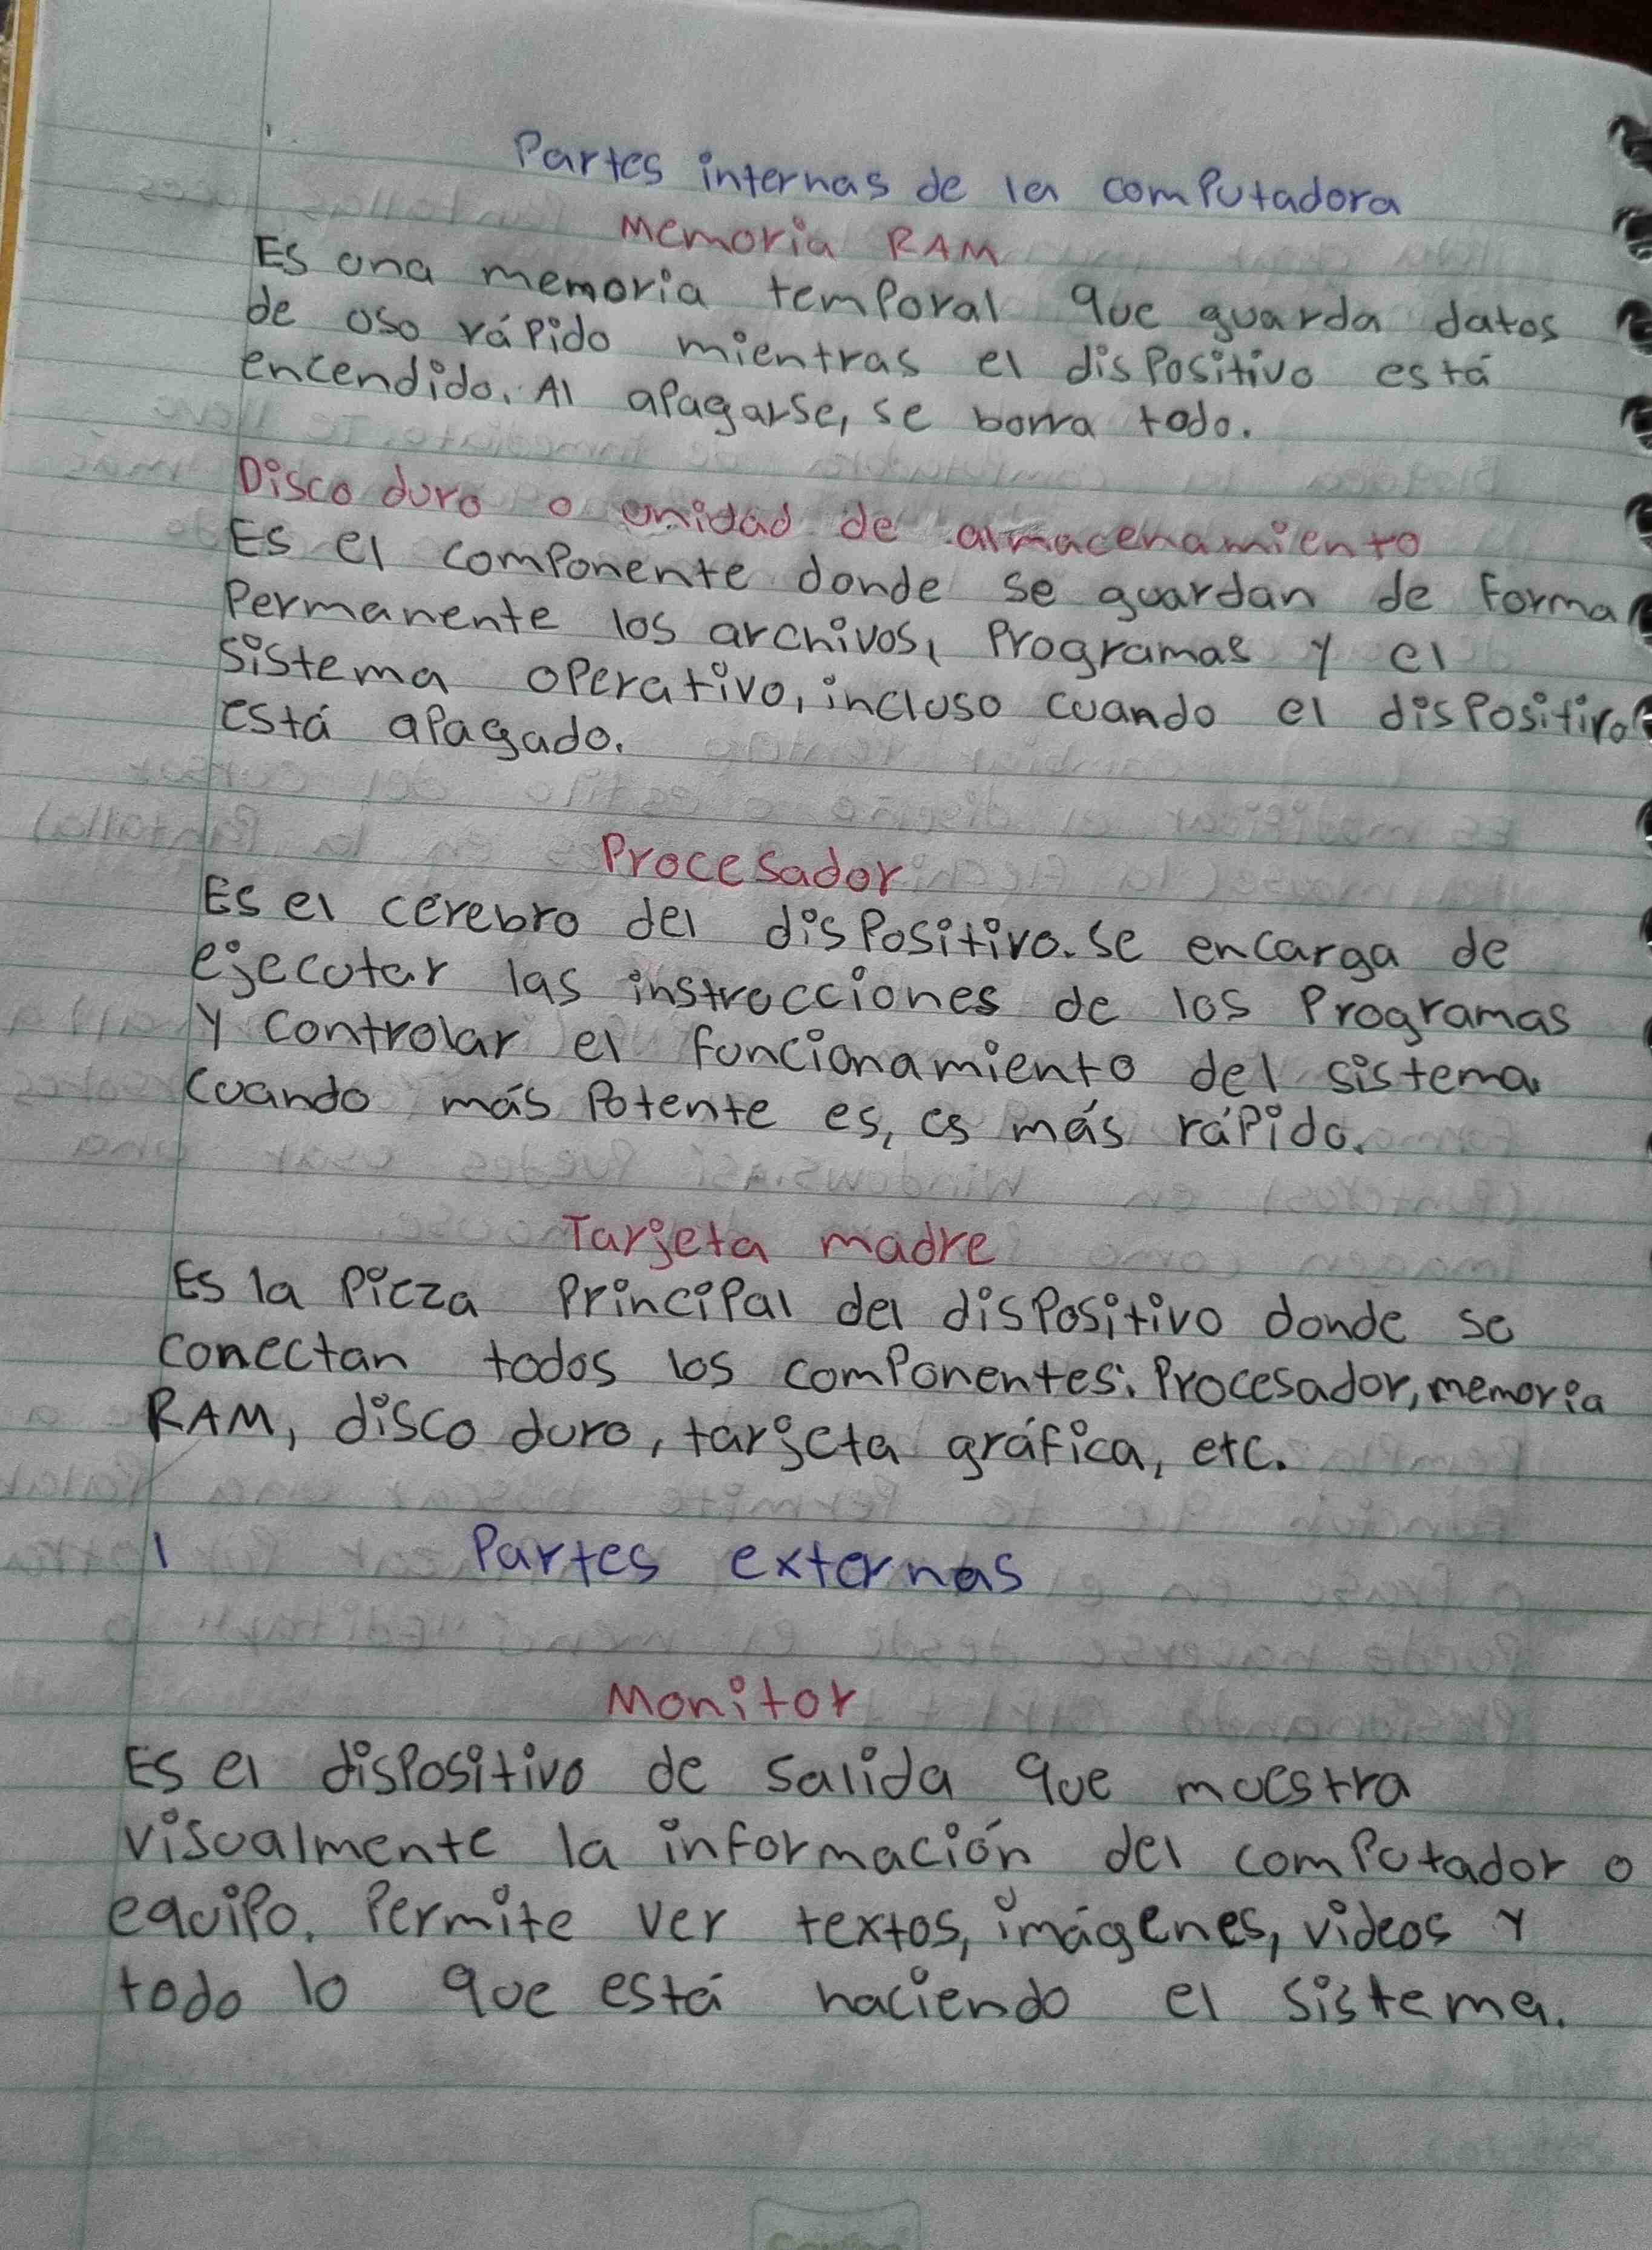 Partes internas de la computadora
Memoria RAM
Es una memoria temporal que guarda datos
de uso rápido mientras el dispositivo está
encendido. Al apagarse, se borra todo.
Disco duro o unidad de almacenamiento
Es el componente donde se guardan de forma
permanente los archivos, programas y el
sistema operativo, incluso cuando el dispositivo
está apagado.
Procesador
Es el cerebro del dispositivo. Se encarga de
ejecutar las instrucciones de los programas
y controlar el funcionamiento del sistema.
Cuando más potente es, es más rápido.
Tarjeta madre
Es la pieza principal del dispositivo donde se
conectan todos los componentes: Procesador, memoria
RAM, disco duro, tarjeta gráfica, etc.
1 Partes externas
Monitor
Es el dispositivo de salida que muestra
visualmente la información del computador o
equipo. Permite ver textos, imágenes, videos y
todo lo que está haciendo el sistema.